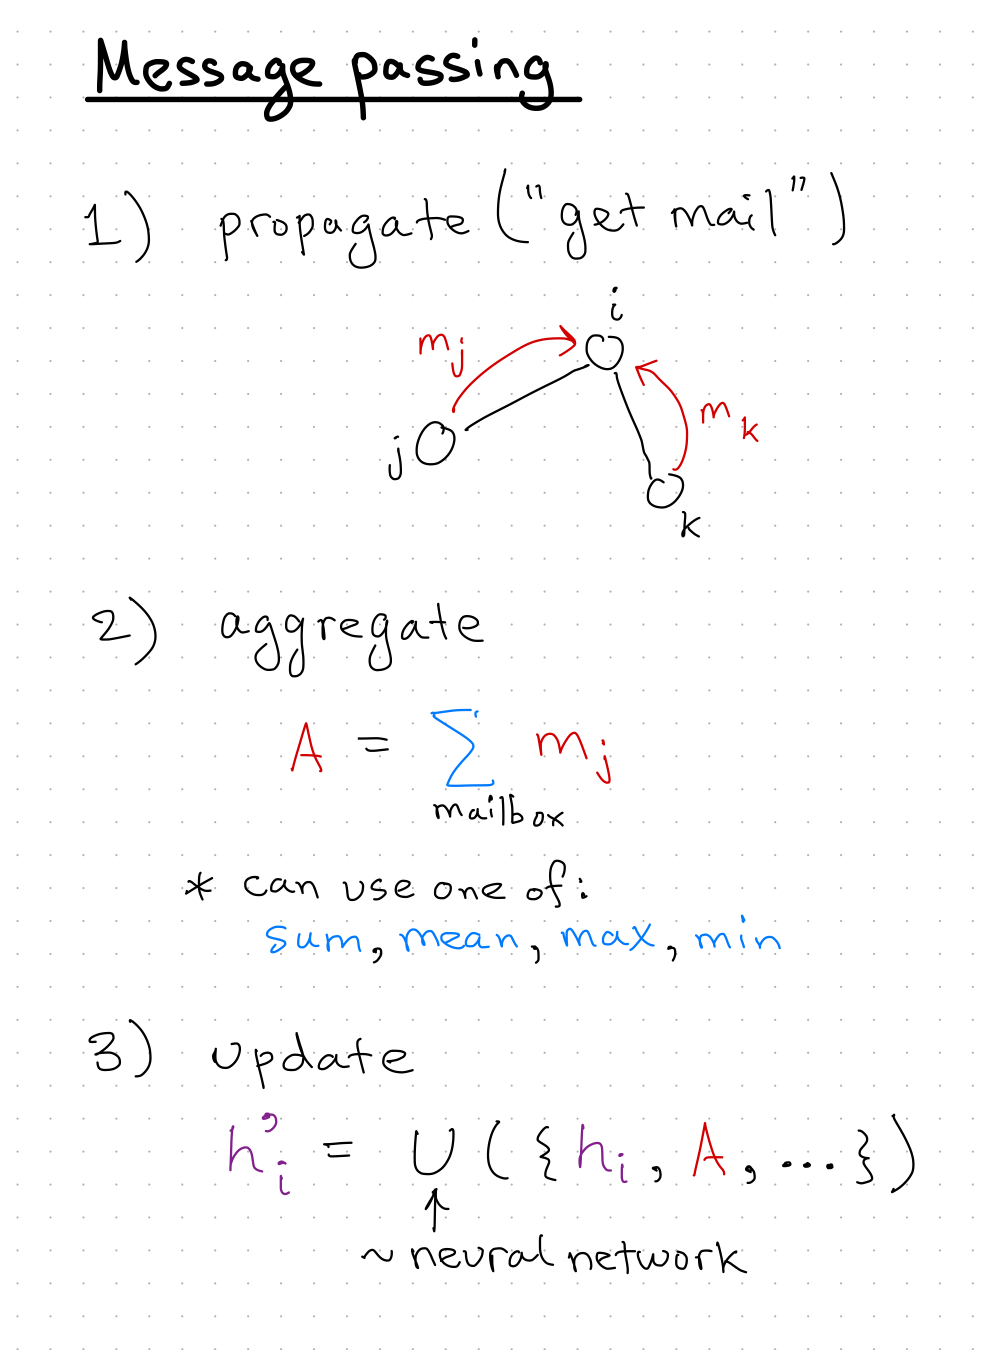 Message passing
1) propagate ("get mail")
i
m_j
m_k
j
k
2) aggregate
A = ∑ m_j
mailbox
* can use one of:
sum, mean, max, min
3) update
h'_i = U ({h_i, A, ...})
↑
~ neural network